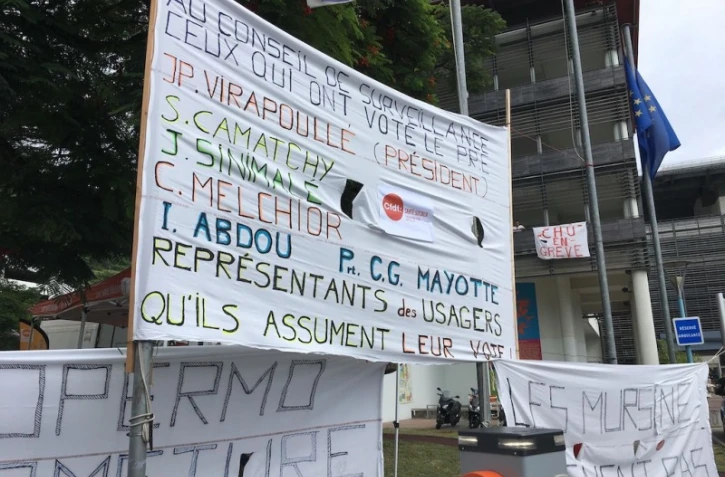 AU CONSEIL DE SURVEILLANCE
CEUX QUI ONT VOTÉ LE PRE
JP. VIRAPOULLE (PRÉSIDENT)
S. CAMATCHY
J. SINIMALE
C. MELCHIOR
I. ABDOU Prt. C.G. MAYOTTE
REPRÉSENTANTS des USAGERS
QU'ILS ASSUMENT LEUR VOTE
Cfdt:
CHU EN
GRÈVE
RÉSERVÉ
AMBULANCES
OPERMO
LES MURS NE